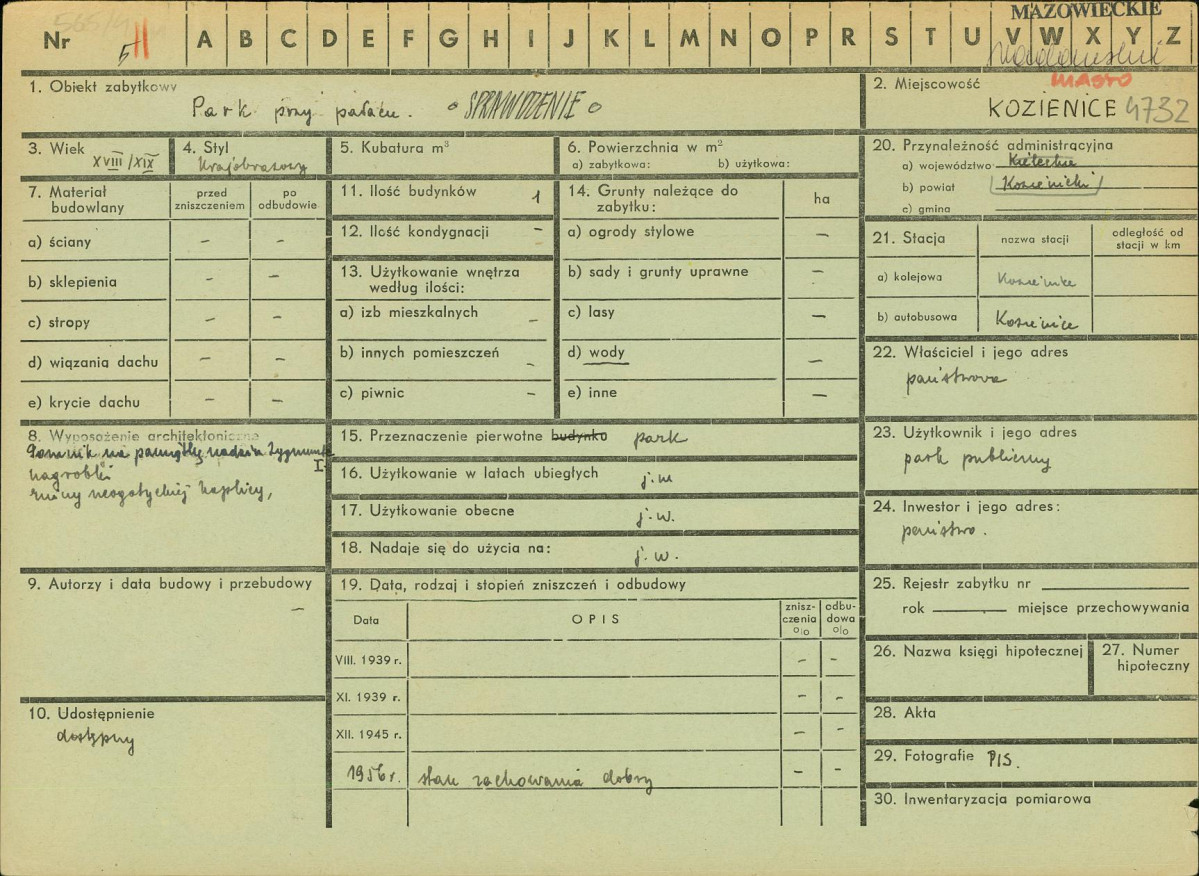 MAZOWIECKIE
Nr 5 II A B C D E F G H I J K L M N O P R S T U V W X Y Z
1. Obiekt zabytkowy
Park przy pałacu. o SPRAWDZENIE o
2. Miejscowość MIASTO
KOZIENICE 4732
3. Wiek XVIII/XIX
4. Styl
Krajobrazowy
5. Kubatura m³
6. Powierzchnia w m²
a) zabytkowa: b) użytkowa:
20. Przynależność administracyjna
a) województwo Kieleckie
b) powiat (Kozienicki)
c) gmina
7. Materiał budowlany
przed zniszczeniem
po odbudowie
a) ściany – –
b) sklepienia – –
c) stropy – –
d) wiązania dachu – –
e) krycie dachu – –
11. Ilość budynków 1
12. Ilość kondygnacji –
13. Użytkowanie wnętrza
według ilości:
a) izb mieszkalnych –
b) innych pomieszczeń –
c) piwnic –
14. Grunty należące do
zabytku:
ha
a) ogrody stylowe –
b) sady i grunty uprawne –
c) lasy –
d) wody –
e) inne –
21. Stacja
nazwa stacji
odległość od
stacji w km
a) kolejowa Kozienice
b) autobusowa Kozienice
22. Właściciel i jego adres
państwowa
8. Wyposażenie architektoniczne
Pomnik na pamiątkę nadzin Zygmunta
I.
nagrobki
ruiny neogotyckiej kaplicy,
15. Przeznaczenie pierwotne budynko park
16. Użytkowanie w latach ubiegłych j.w
17. Użytkowanie obecne j.w.
18. Nadaje się do użycia na: j.w.
23. Użytkownik i jego adres
park publiczny
24. Inwestor i jego adres:
państwo.
9. Autorzy i data budowy i przebudowy
–
19. Data, rodzaj i stopień zniszczeń i odbudowy
Data OPIS
znisz-
czenia
o|o
odbu-
dowa
o|o
VIII. 1939 r. – –
XI. 1939 r. – –
XII. 1945 r. – –
1956 r. stan zachowania dobry – –
25. Rejestr zabytku nr
rok miejsce przechowywania
26. Nazwa księgi hipotecznej
27. Numer
hipoteczny
10. Udostępnienie
dostępny
28. Akta
29. Fotografie PIS.
30. Inwentaryzacja pomiarowa